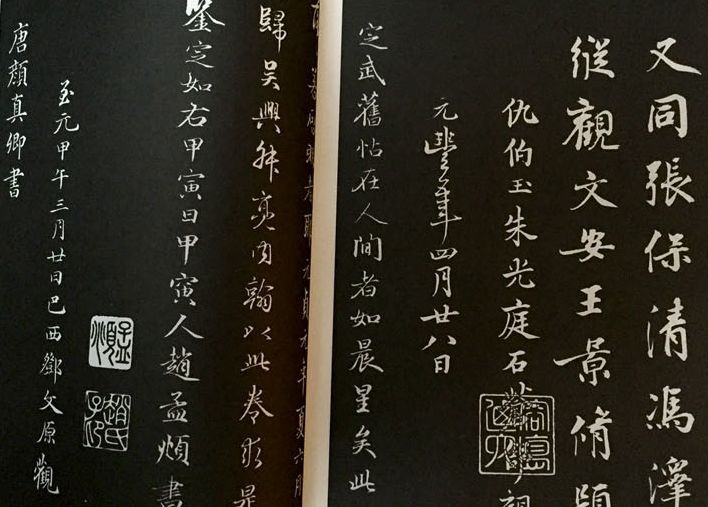 又同張保清馮澤
縱觀文安王景脩題
仇伯玉朱光庭石
元豐年四月廿八日
定武舊帖在人間者如晨星矣此
歸吳興叔亮内翰以此卷求是
鑒定如右甲寅日甲寅人趙孟頫書
至元甲午三月廿日巴西鄧文原觀
唐顏真卿書